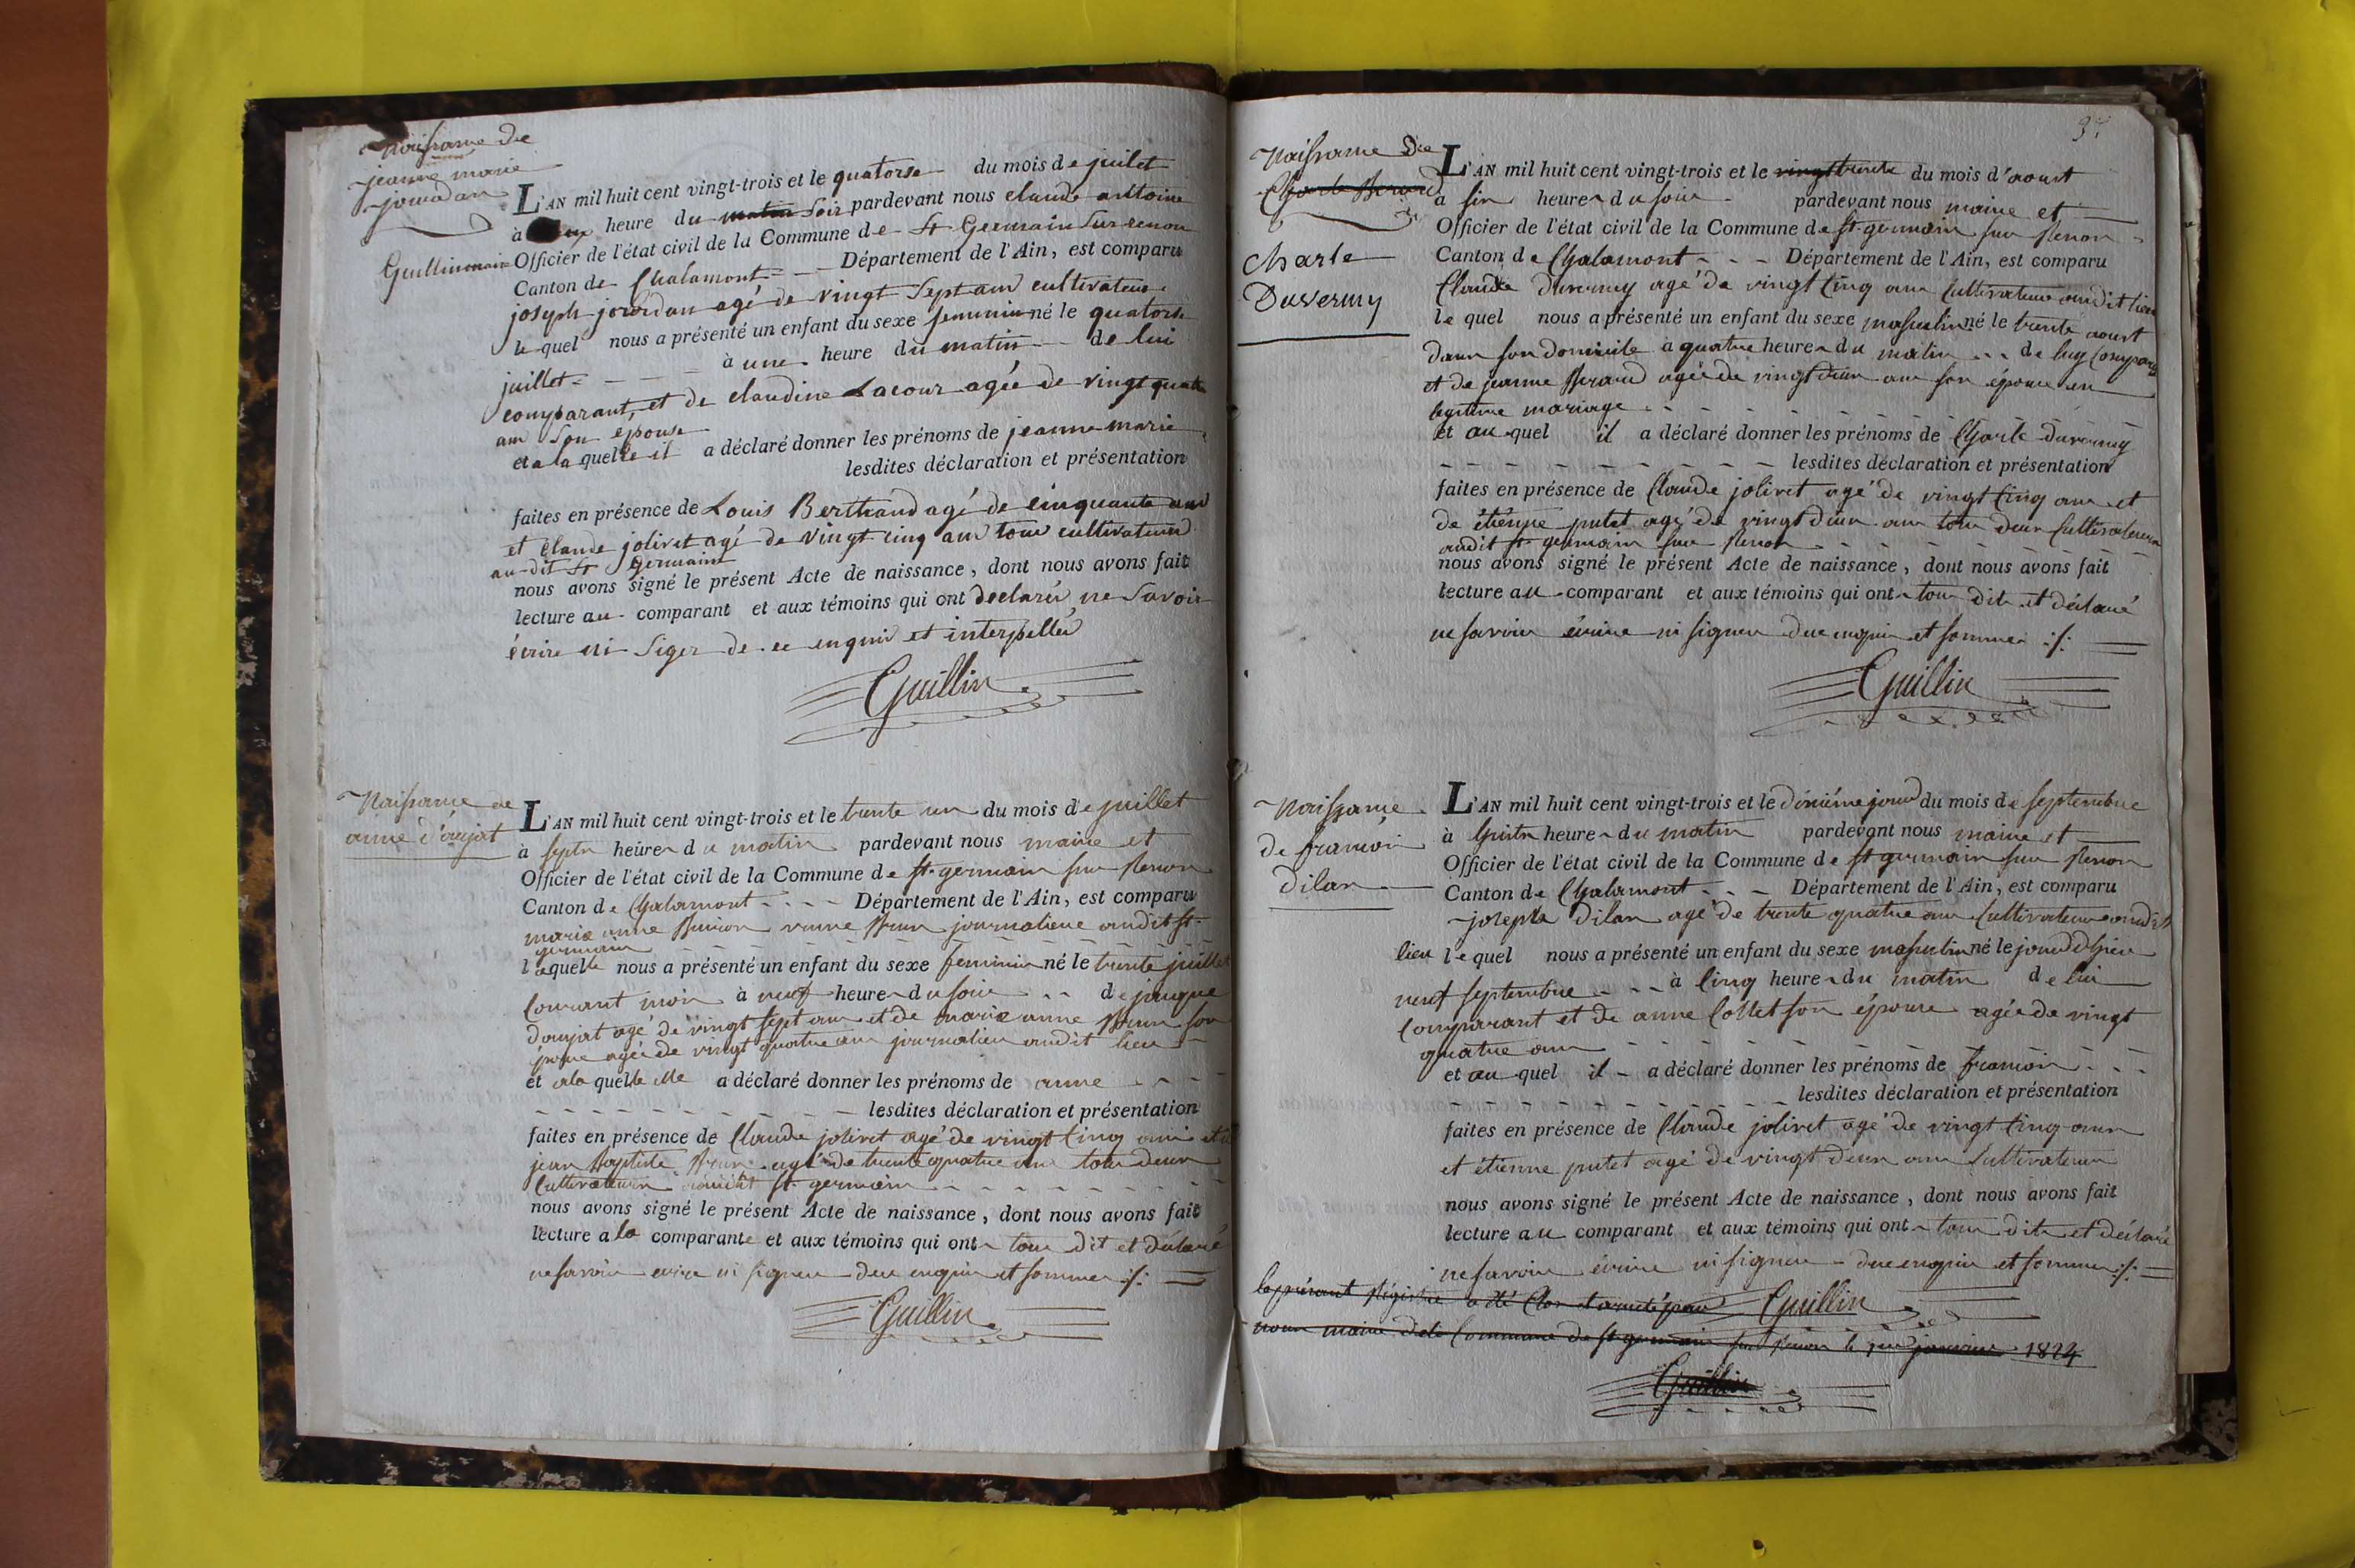 Naissance de
jeanne marie
jourdan
L'AN mil huit cent vingt-trois et le quatorse du mois de juilet
à heure du matin soir pardevant nous claude anttoine
Guillin maire Officier de l'état civil de la Commune de St Germain sur renon
Canton de Chalamont Département de l'Ain, est comparu
joseph jourdan agé de vingt sept ans cultivateur
le quel nous a présenté un enfant du sexe feminin né le quatorse
juillet à une heure du matin de lui
comparant, et de claudine Lacour agée de vingt quatre
ans son epouse
et a la quelle il a déclaré donner les prénoms de jeanne marie
lesdites déclaration et présentation
faites en présence de Louis Berthaud agé de cinquante ans
et Claude jolivet agé de vingt cinq ans tous cultivateurs
au dit St Germain
nous avons signé le présent Acte de naissance, dont nous avons fait
lecture au comparant et aux témoins qui ont declarés ne savoir
écrire ni siger de ce enquis et interpellés
Guillin
Naissance de
anne d'aujat
L'AN mil huit cent vingt-trois et le trente un du mois de juillet
à septs heures du matin pardevant nous maire et
Officier de l'état civil de la Commune de st. germain sur Renon
Canton de Chalamont Département de l'Ain, est comparu
marie anne veuve Brun journaliere audit st.
germain
laquelle nous a présenté un enfant du sexe feminin né le trente juillet
Courant mois à neuf heures du soir de jacque
Daujat agé de vingt sept ans et de marie anne Brun son
épouse agée de vingt quatre ans journalier audit lieu
et a la quelle elle a déclaré donner les prénoms de anne
lesdites déclaration et présentation
faites en présence de Claude jolivet agé de vingt cinq ans et
jean Baptiste Brun agé de trente quatre ans tous deux
Cultivateurs audit st. germain
nous avons signé le présent Acte de naissance, dont nous avons fait
lecture a la comparante et aux témoins qui ont tous dit et déclaré
ne savoir ecrire ni signer de ce enquis et sommes ./.
Guillin
Naissance De
Charle Berard
Charle
Duvernay
L'AN mil huit cent vingt-trois et le vingt trente du mois d'aoust
à six heures du soir pardevant nous maire et
Officier de l'état civil de la Commune de st. germain sur Renon
Canton de Chalamont Département de l'Ain, est comparu
Claude Duvernay agé de vingt Cinq ans Cultivateur audit lieu
le quel nous a présenté un enfant du sexe masculin né le trente aoust
dans son domicile à quatre heures du matin de luy Comparant
et de jeanne Berard agée de vingt deux ans son épouse en
legitime mariage
et au quel il a déclaré donner les prénoms de Charle Duvernay
lesdites déclaration et présentation
faites en présence de Claude jolivet agé de vingt Cinq ans et
de étienne putet agé de vingt deux ans tous deux Cultivateurs
audit st. germain sur Renon
nous avons signé le présent Acte de naissance, dont nous avons fait
lecture au comparant et aux témoins qui ont tous dit et déclaré
ne savoir écrire ni signer de ce enquis et sommes ./.
Guillin
Naissance
de francois
Dilan
L'AN mil huit cent vingt-trois et le dixiéme jour du mois de septembre
à huits heures du matin pardevant nous maire et
Officier de l'état civil de la Commune de st germain sur Renon
Canton de Chalamont Département de l'Ain, est comparu
joseph Dilan agé de trente quatre ans Cultivateur audit
lieu le quel nous a présenté un enfant du sexe masculin né le jour d'hier
neuf septembre à Cinq heures du matin de lui
Comparant et de anne Collet son épouse agée de vingt
quatre ans
et au quel il a déclaré donner les prénoms de francois
lesdites déclaration et présentation
faites en présence de Claude jolivet agé de vingt Cinq ans
et étienne putet agé de vingt deux ans Cultivateurs
nous avons signé le présent Acte de naissance, dont nous avons fait
lecture au comparant et aux témoins qui ont tous dit et déclaré
ne savoir écrire ni signer de ce enquis et sommes ./.
le présent Régistre a été Clos et arreté par Guillin
nous maire de la Commune de st germain sur Renon le janvier 1824
Guillin